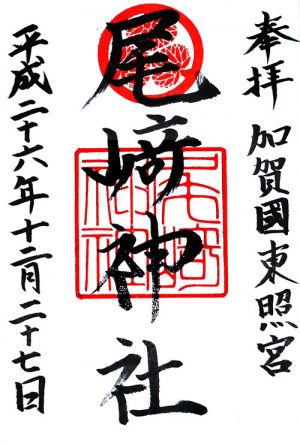 奉拝 加賀國東照宮
尾﨑神社
平成二十六年十二月二十七日
尾﨑神社